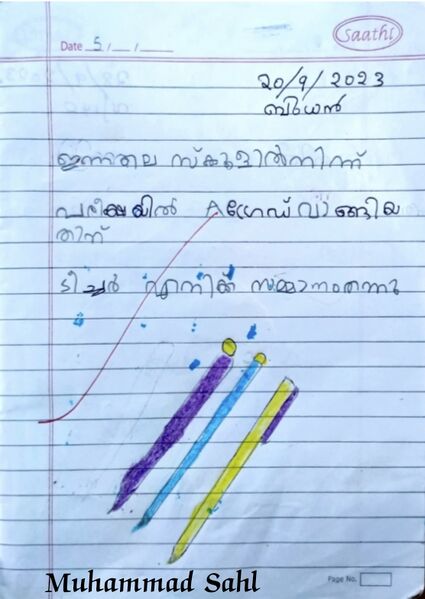 Saathi
Date 5/__/__
20/9/2023
ബുധൻ
ഇന്നലെ സ്കൂളിൽനിന്ന്
പരീക്ഷയിൽ A ഗ്രേഡ് വാങ്ങിയ
തിന്
ടീച്ചർ എനിക്ക് സമ്മാനംതന്നു
Page No.
Muhammad Sahl